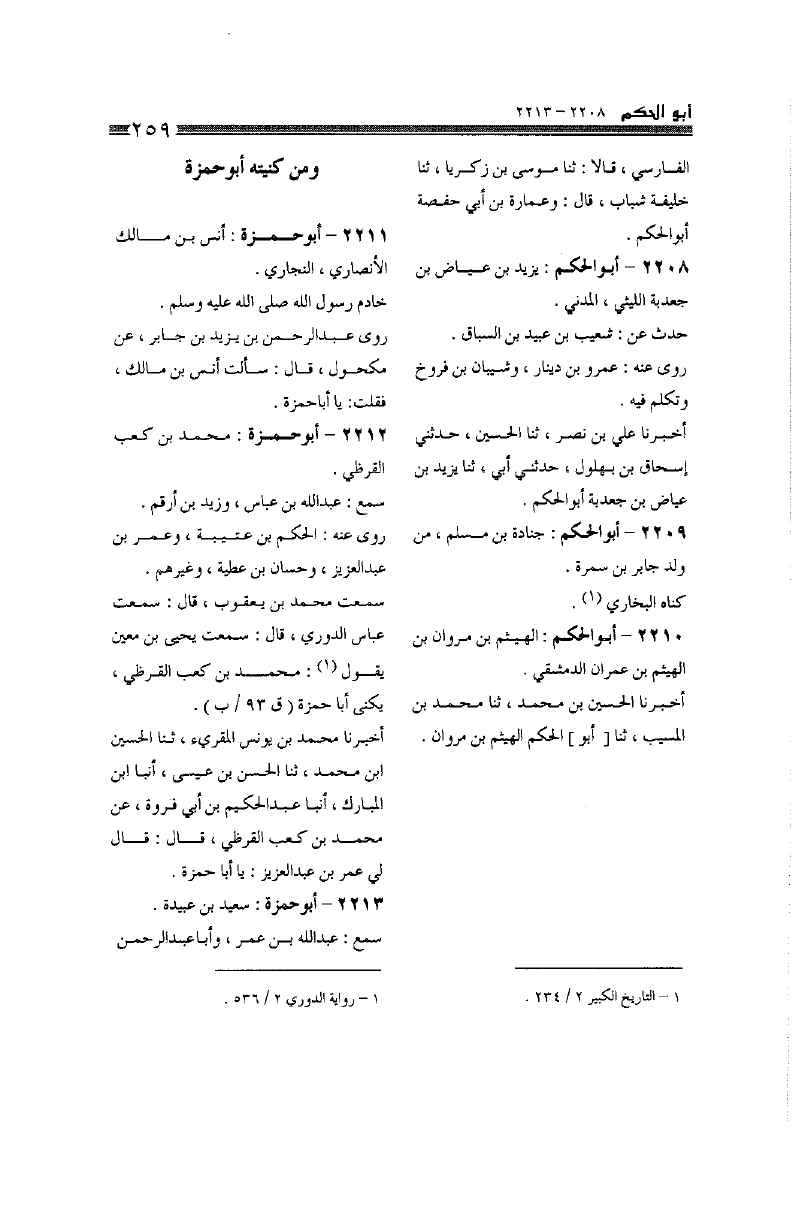 أبو الحكم ٢٢٠٨ - ٢٢١٣
٢٥٩
الفارسي ، قالا : ثنا موسى بن زكريا ، ثنا
خليفة شباب ، قال : وعمارة بن أبي حفصة
أبوالحكم .
٢٢٠٨ - أبوالحكم : يزيد بن عياض بن
جعدبة الليثي ، المدني .
حدث عن : شعيب بن عبيد بن السباق .
روى عنه : عمرو بن دينار ، وشيبان بن فروخ
وتكلم فيه .
أخبرنا علي بن نصر ، ثنا الحسين ، حدثني
إسحاق بن بهلول ، حدثني أبي ، ثنا يزيد بن
عياض بن جعدبة أبوالحكم .
٢٢٠٩ - أبوالحكم : جنادة بن مسلم ، من
ولد جابر بن سمرة .
كناه البخاري (١) .
٢٢١٠ - أبوالحكم : الهيثم بن مروان بن
الهيثم بن عمران الدمشقي .
أخبرنا الحسين بن محمد ، ثنا محمد بن
المسيب ، ثنا [ أبو ] الحكم الهيثم بن مروان .
١ - التاريخ الكبير ٢ / ٢٣٤ .
ومن كنيته أبوحمزة
٢٢١١ - أبوحمزة : أنس بن مالك
الأنصاري ، النجاري .
خادم رسول الله صلى الله عليه وسلم .
روى عبدالرحمن بن يزيد بن جابر ، عن
مكحول ، قال : سألت أنس بن مالك ،
فقلت: يا أباحمزة .
٢٢١٢ - أبوحمزة : محمد بن كعب
القرظي .
سمع : عبدالله بن عباس ، وزيد بن أرقم .
روى عنه : الحكم بن عتيبة ، وعمر بن
عبدالعزيز ، وحسان بن عطية ، وغيرهم .
سمعت محمد بن يعقوب ، قال : سمعت
عباس الدوري ، قال : سمعت يحيى بن معين
يقول (١) : محمد بن كعب القرظي ،
يكنى أبا حمزة ( ق ٩٣ / ب ) .
أخبرنا محمد بن يونس المقريء ، ثنا الحسين
ابن محمد ، ثنا الحسن بن عيسى ، أنبا ابن
المبارك ، أنبا عبدالحكيم بن أبي فروة ، عن
محمد بن كعب القرظي ، قال : قال
لي عمر بن عبدالعزيز : يا أبا حمزة .
٢٢١٣ - أبوحمزة : سعيد بن عبيدة .
سمع : عبدالله بن عمر ، وأباعبدالرحمن
١ - رواية الدوري ٢ / ٥٣٦ .